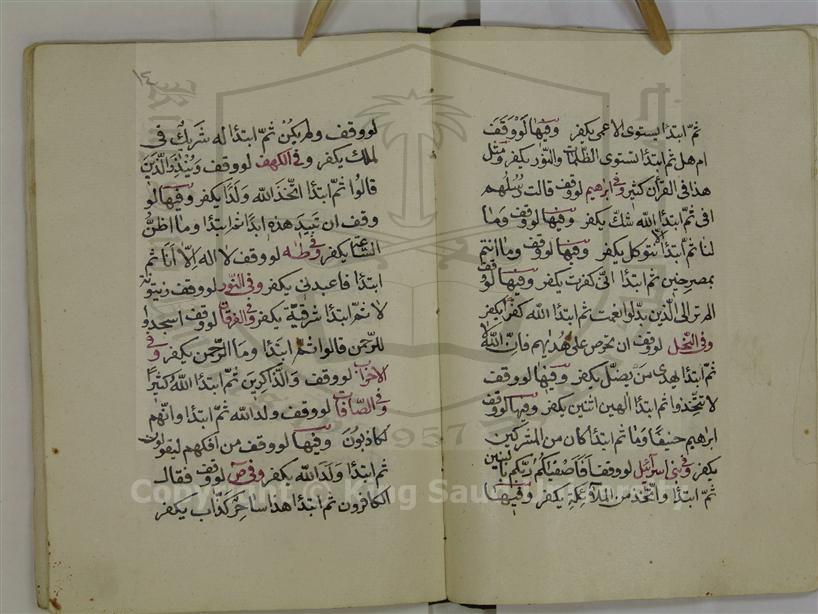 ثم ابتدا يستوى الاعمى يكفر وفيها لو وقف
ام هل ثم ابتدا تستوى الظلمات والنور يكفر ومثل
هذا فى القرآن كثير وفى ابرهيم لو وقف قالت رسلهم
افى ثم ابتدا الله شك يكفر وفيها لو وقف وما
لنا ثم ابتدا الا نتوكل يكفر وفيها لو وقف وما انتم
بمصرخى ثم ابتدا انى كفرت يكفر وفيها لو وقف
الم تر الى الذين بدلوا نعمت ثم ابتدا الله كفرا يكفر
وفى النحل لو وقف ان تحرص على هديهم فان الله لا
ثم ابتدا يهدى من يضل يكفر وفيها لو وقف
لا تتخذوا ثم ابتدا الهين اثنين يكفر وفيها لو وقف
ابراهيم حنيفا وما ثم ابتدا كان من المشركين
يكفر وفى بنى اسرآئيل لو وقف افاصفيكم ربكم بالبنين
ثم ابتدا واتخذ من الملآئكة يكفر وفيها
١٤
لو وقف ولم يكن ثم ابتدا له شريك فى
الملك يكفر وفى الكهف لو وقف وينذر الذين
قالوا ثم ابتدا اتخذ الله ولدا يكفر وفيها لو
وقف ان تبيد هذه ابدا ثم ابتدا وما اظن
الساعة يكفر وفى طه لو وقف لا اله الا انا ثم
ابتدا فاعبدنى يكفر وفى النور لو وقف زيتونة
لا ثم ابتدا شرقية يكفر وفى الفرقان لو وقف اسجدوا
للرحمن قالوا ثم ابتدا وما الرحمن يكفر وفى
الاحزاب لو وقف والذاكرين ثم ابتدا الله كثيرا
وفى الصافات لو وقف ولد الله ثم ابتدا وانهم
لكاذبون وفيها لو وقف من افكهم ليقولون
ثم ابتدا ولد الله يكفر وفى ص لو وقف فقال
الكافرون ثم ابتدا هذا ساحر كذاب يكفر
1957
Copyright © King Saud University